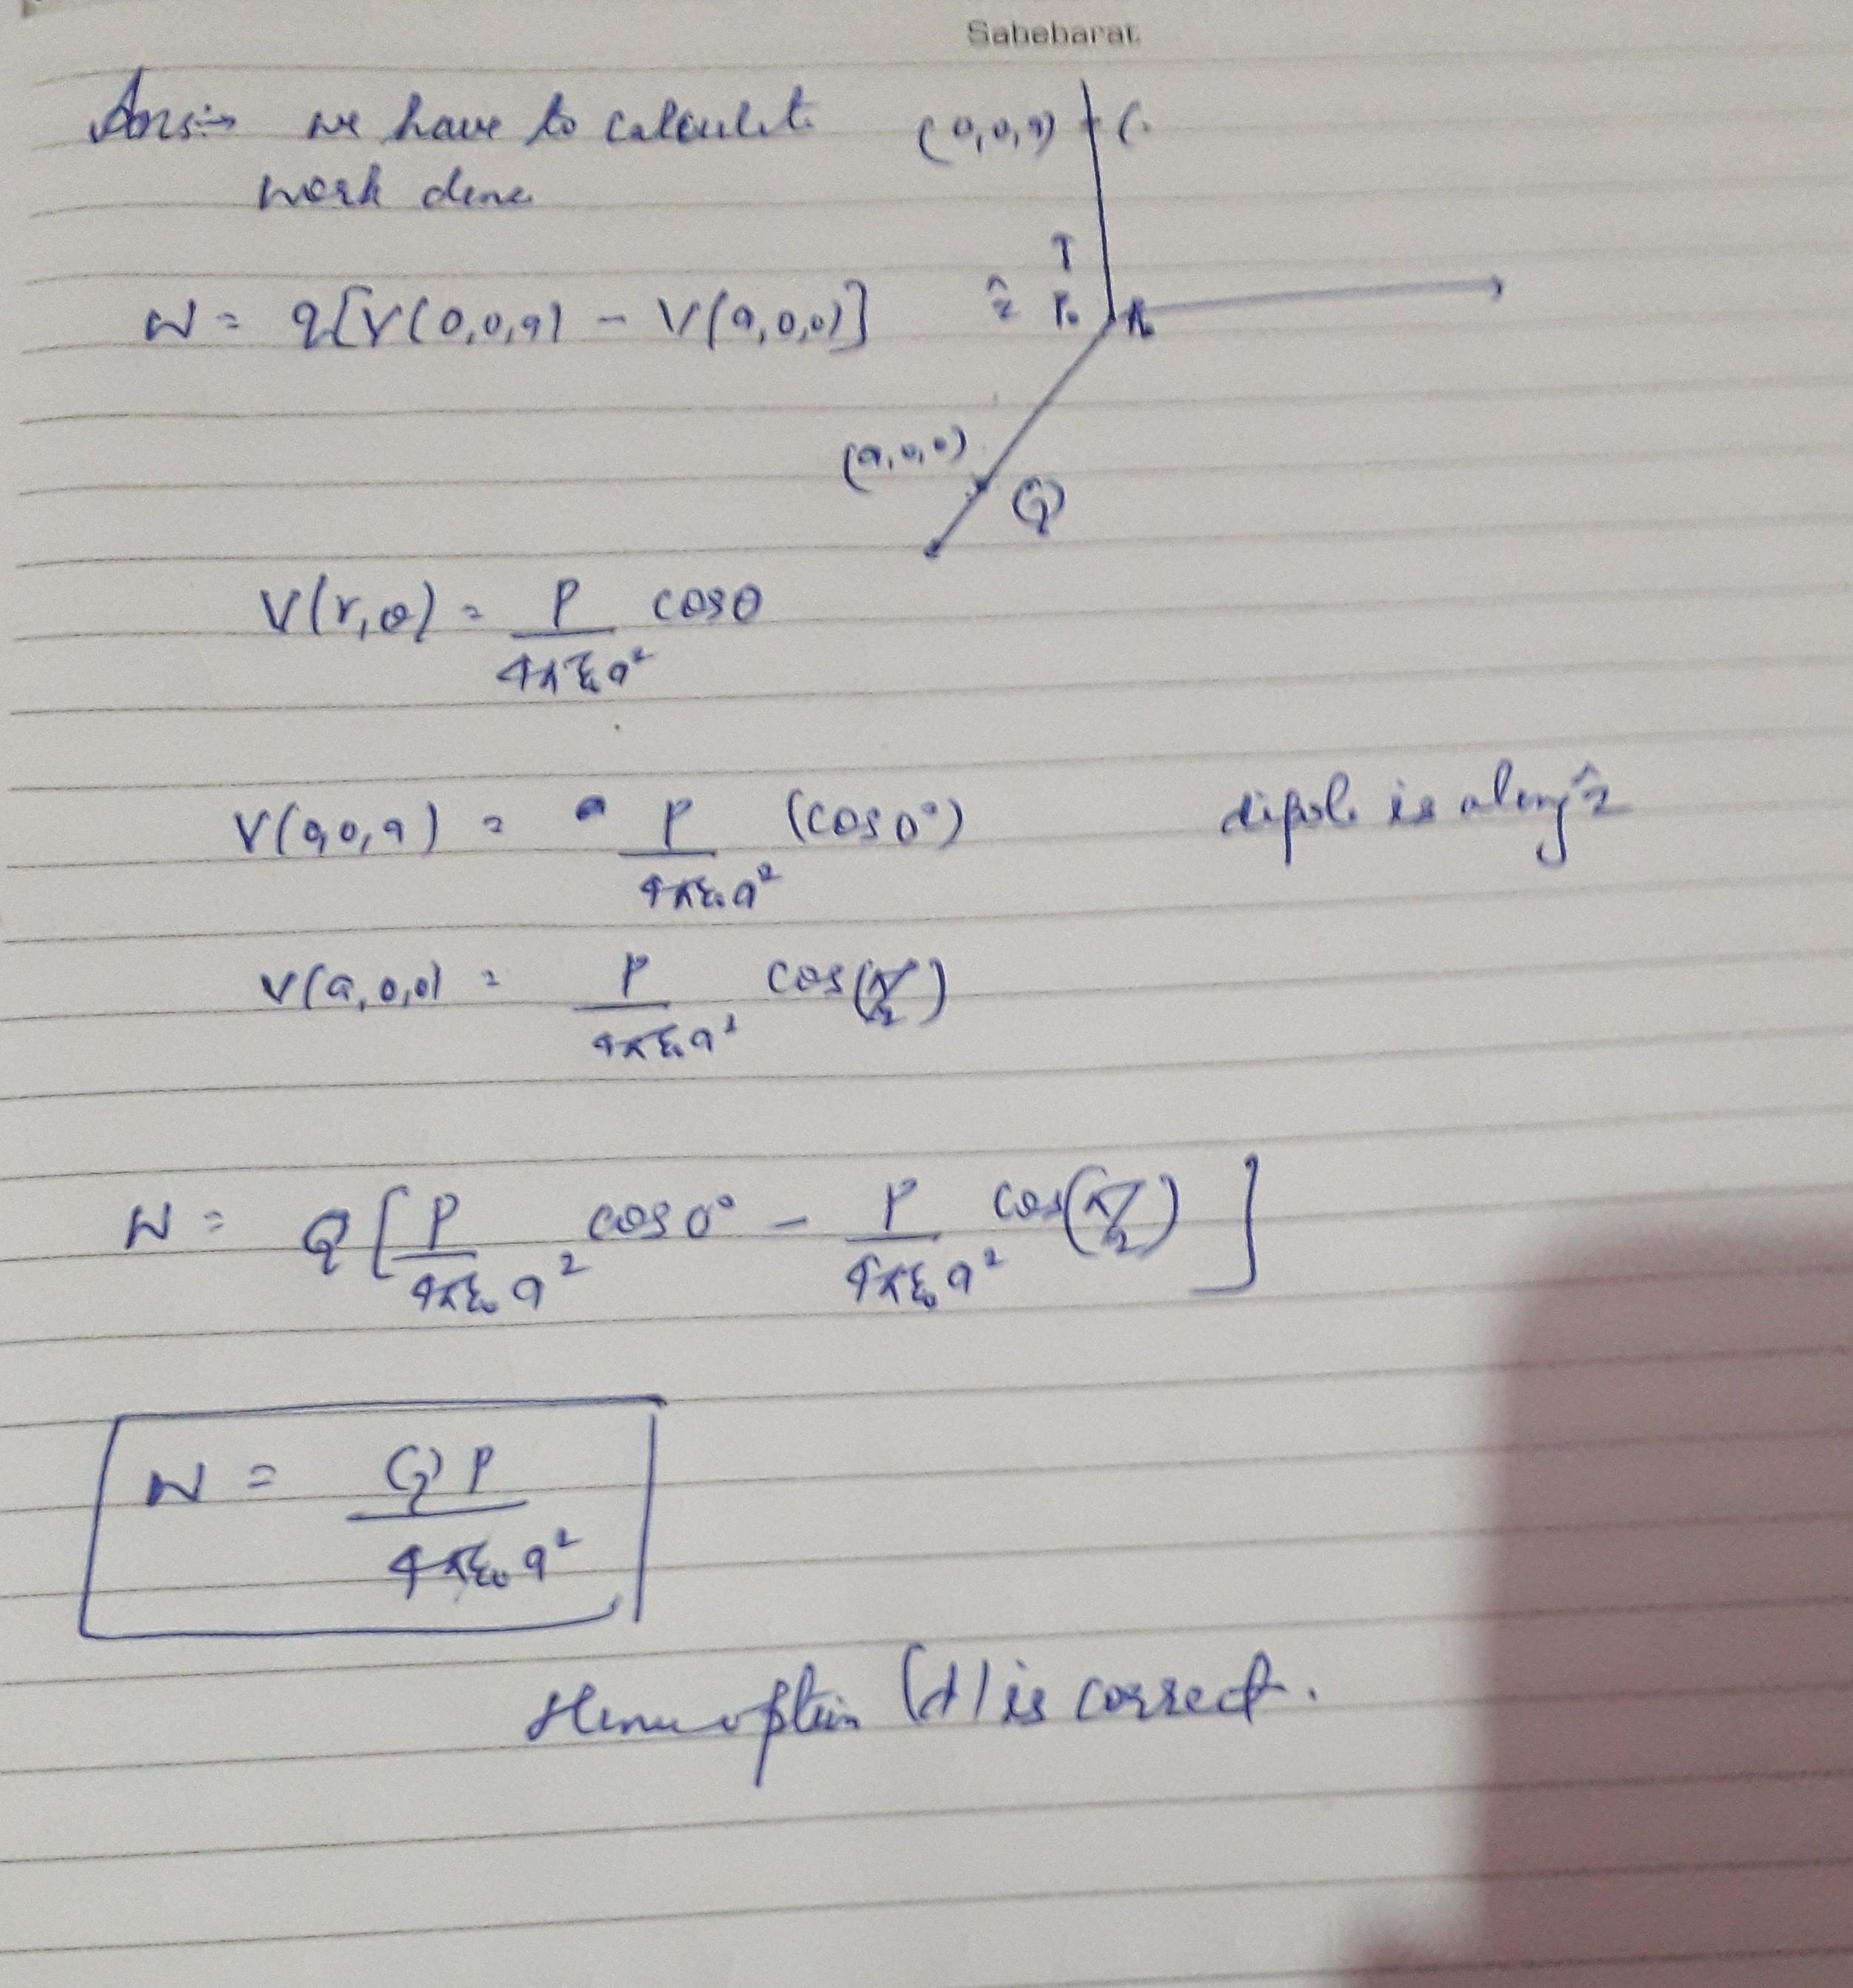 Sabebarat
Ans:→ we have to calculate (0,0,a)
work done
W = q[V(0,0,a) - V(a,0,0)] ẑ P₀
(a,0,0)
Q
V(r,θ) = P/4πε₀a² cosθ
V(0,0,a) = P/4πε₀a² (cos0°) dipole is along ẑ
V(a,0,0) = P/4πε₀a² cos(π/2)
W = Q[P/4πε₀a² cos0° - P/4πε₀a² cos(π/2)]
W = QP/4πε₀a²
Hence option (d) is correct.